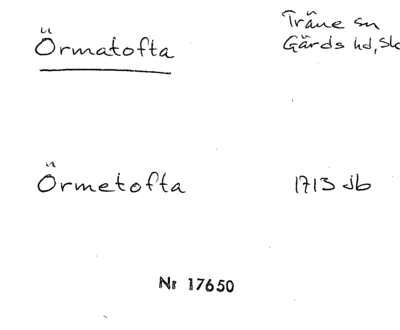 Örmatofta
Träne sn
Gärds hd, Sk
Örmetofta
1713 Jb
Nr 17650